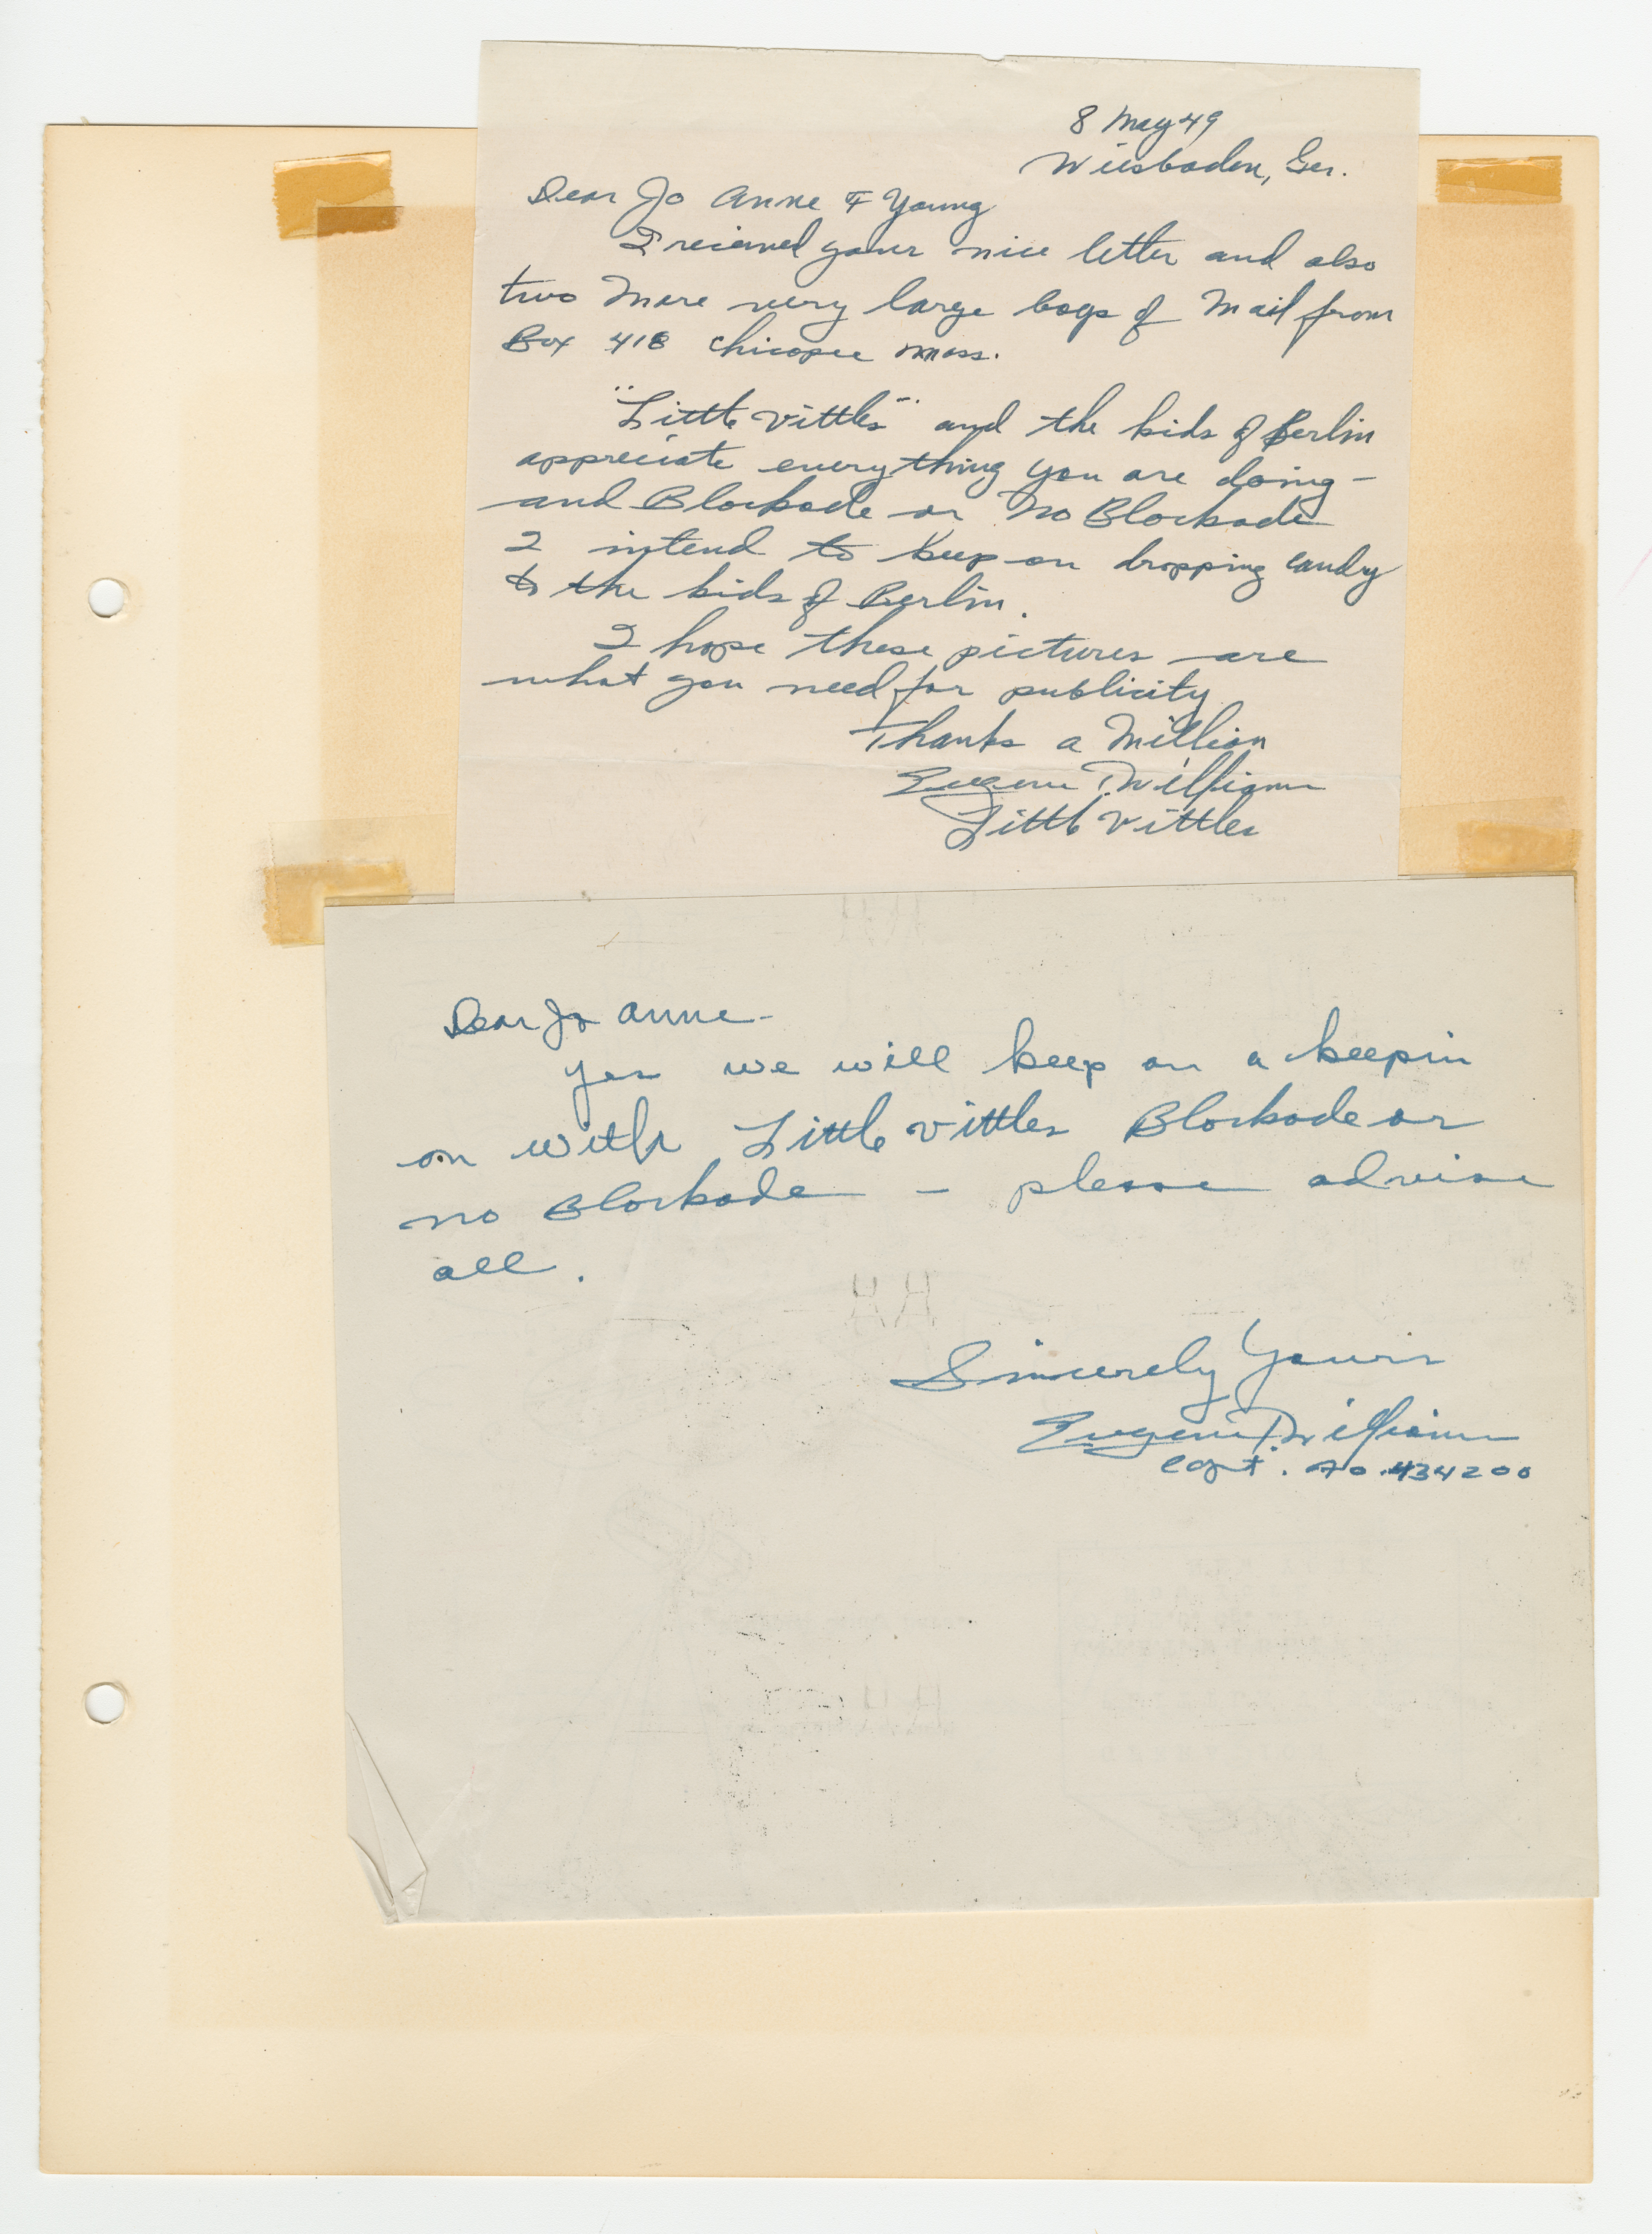 8 May 49
Wiesbaden, Ger.
Dear Jo Anne F Young
I recieved your nice letter and also
two more very large bags of Mail from
Box 418 Chicopee Mass.
"Little Vittles" and the kids of Berlin
appreciate everything you are doing -
and Blockade or No Blockade
I intend to keep on dropping candy
to the kids of Berlin.
I hope these pictures are
what you need for publicity
Thanks a Million
Eugene T. Williams
Little Vittles
Dear Jo Anne -
Yes we will keep on a keepin
on with Little Vittles Blockade or
no Blockade - please advise
all.
Sincerely Yours
Eugene T. Williams
Capt. AO.434200